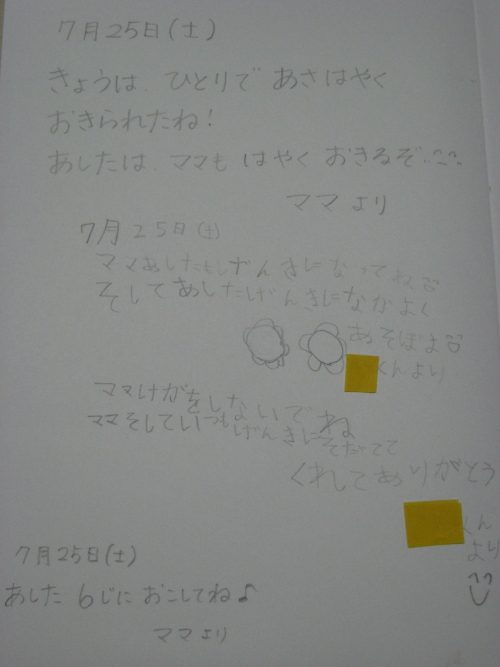 7月25日(土)
きょうは、ひとりで あさはやく
おきられたね!
あしたは、ママも はやく おきるぞ
ママより
7月25日(土)
ママあしたもげんきになってね
そしてあしたげんきになかよく
あそぼ
くんより
ママけがをしないでね
ママそしていつもげんきにそだてて
くれしてありがとう
くん
より
7月25日(土)
あした 6じに おこしてね♪
ママより